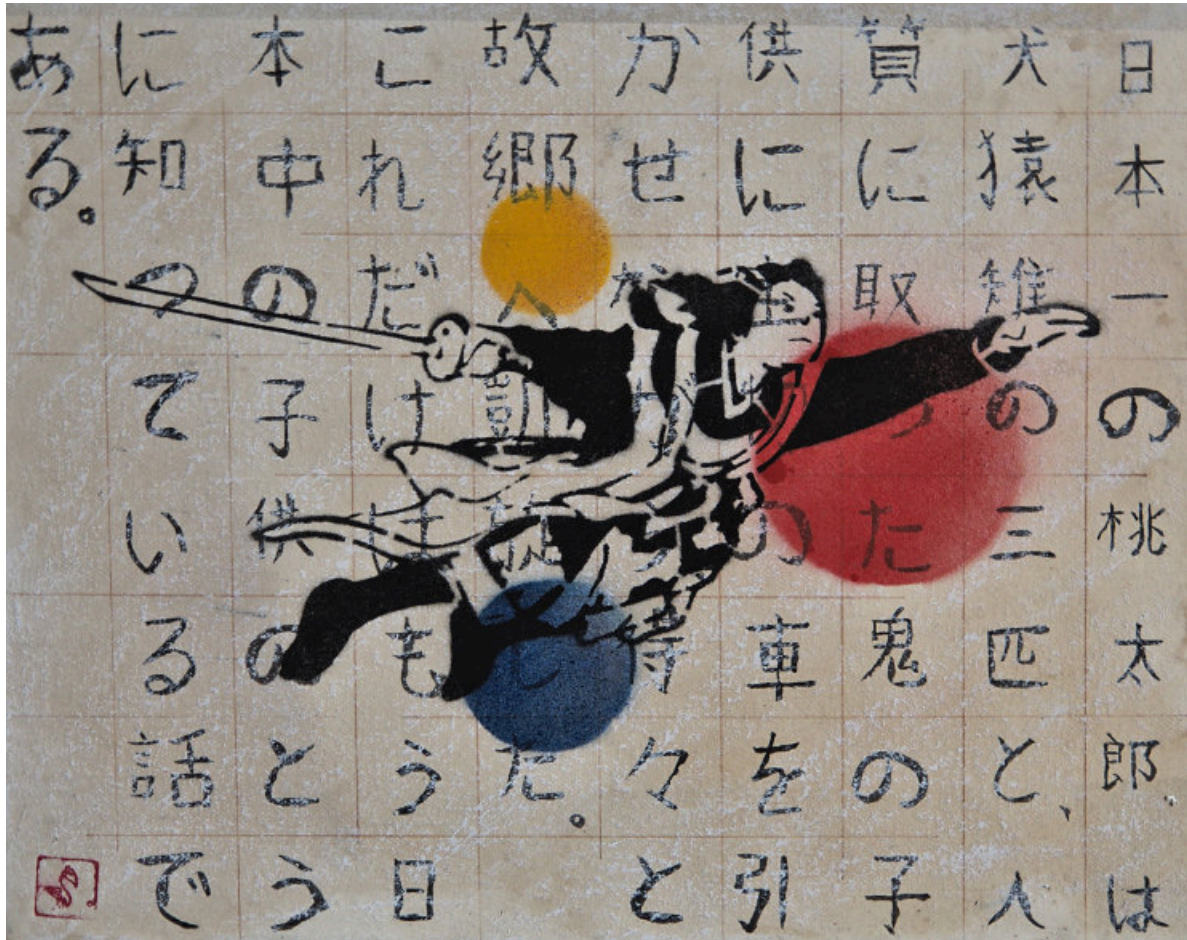 日本一の桃太郎、は
犬猿雉の三匹と、人
質に取った鬼の子
供に宝物の車を引
かせながら得々と
故郷へ凱旋した。
これだけはもう日
本中の子供のとう
に知っている話で
ある。